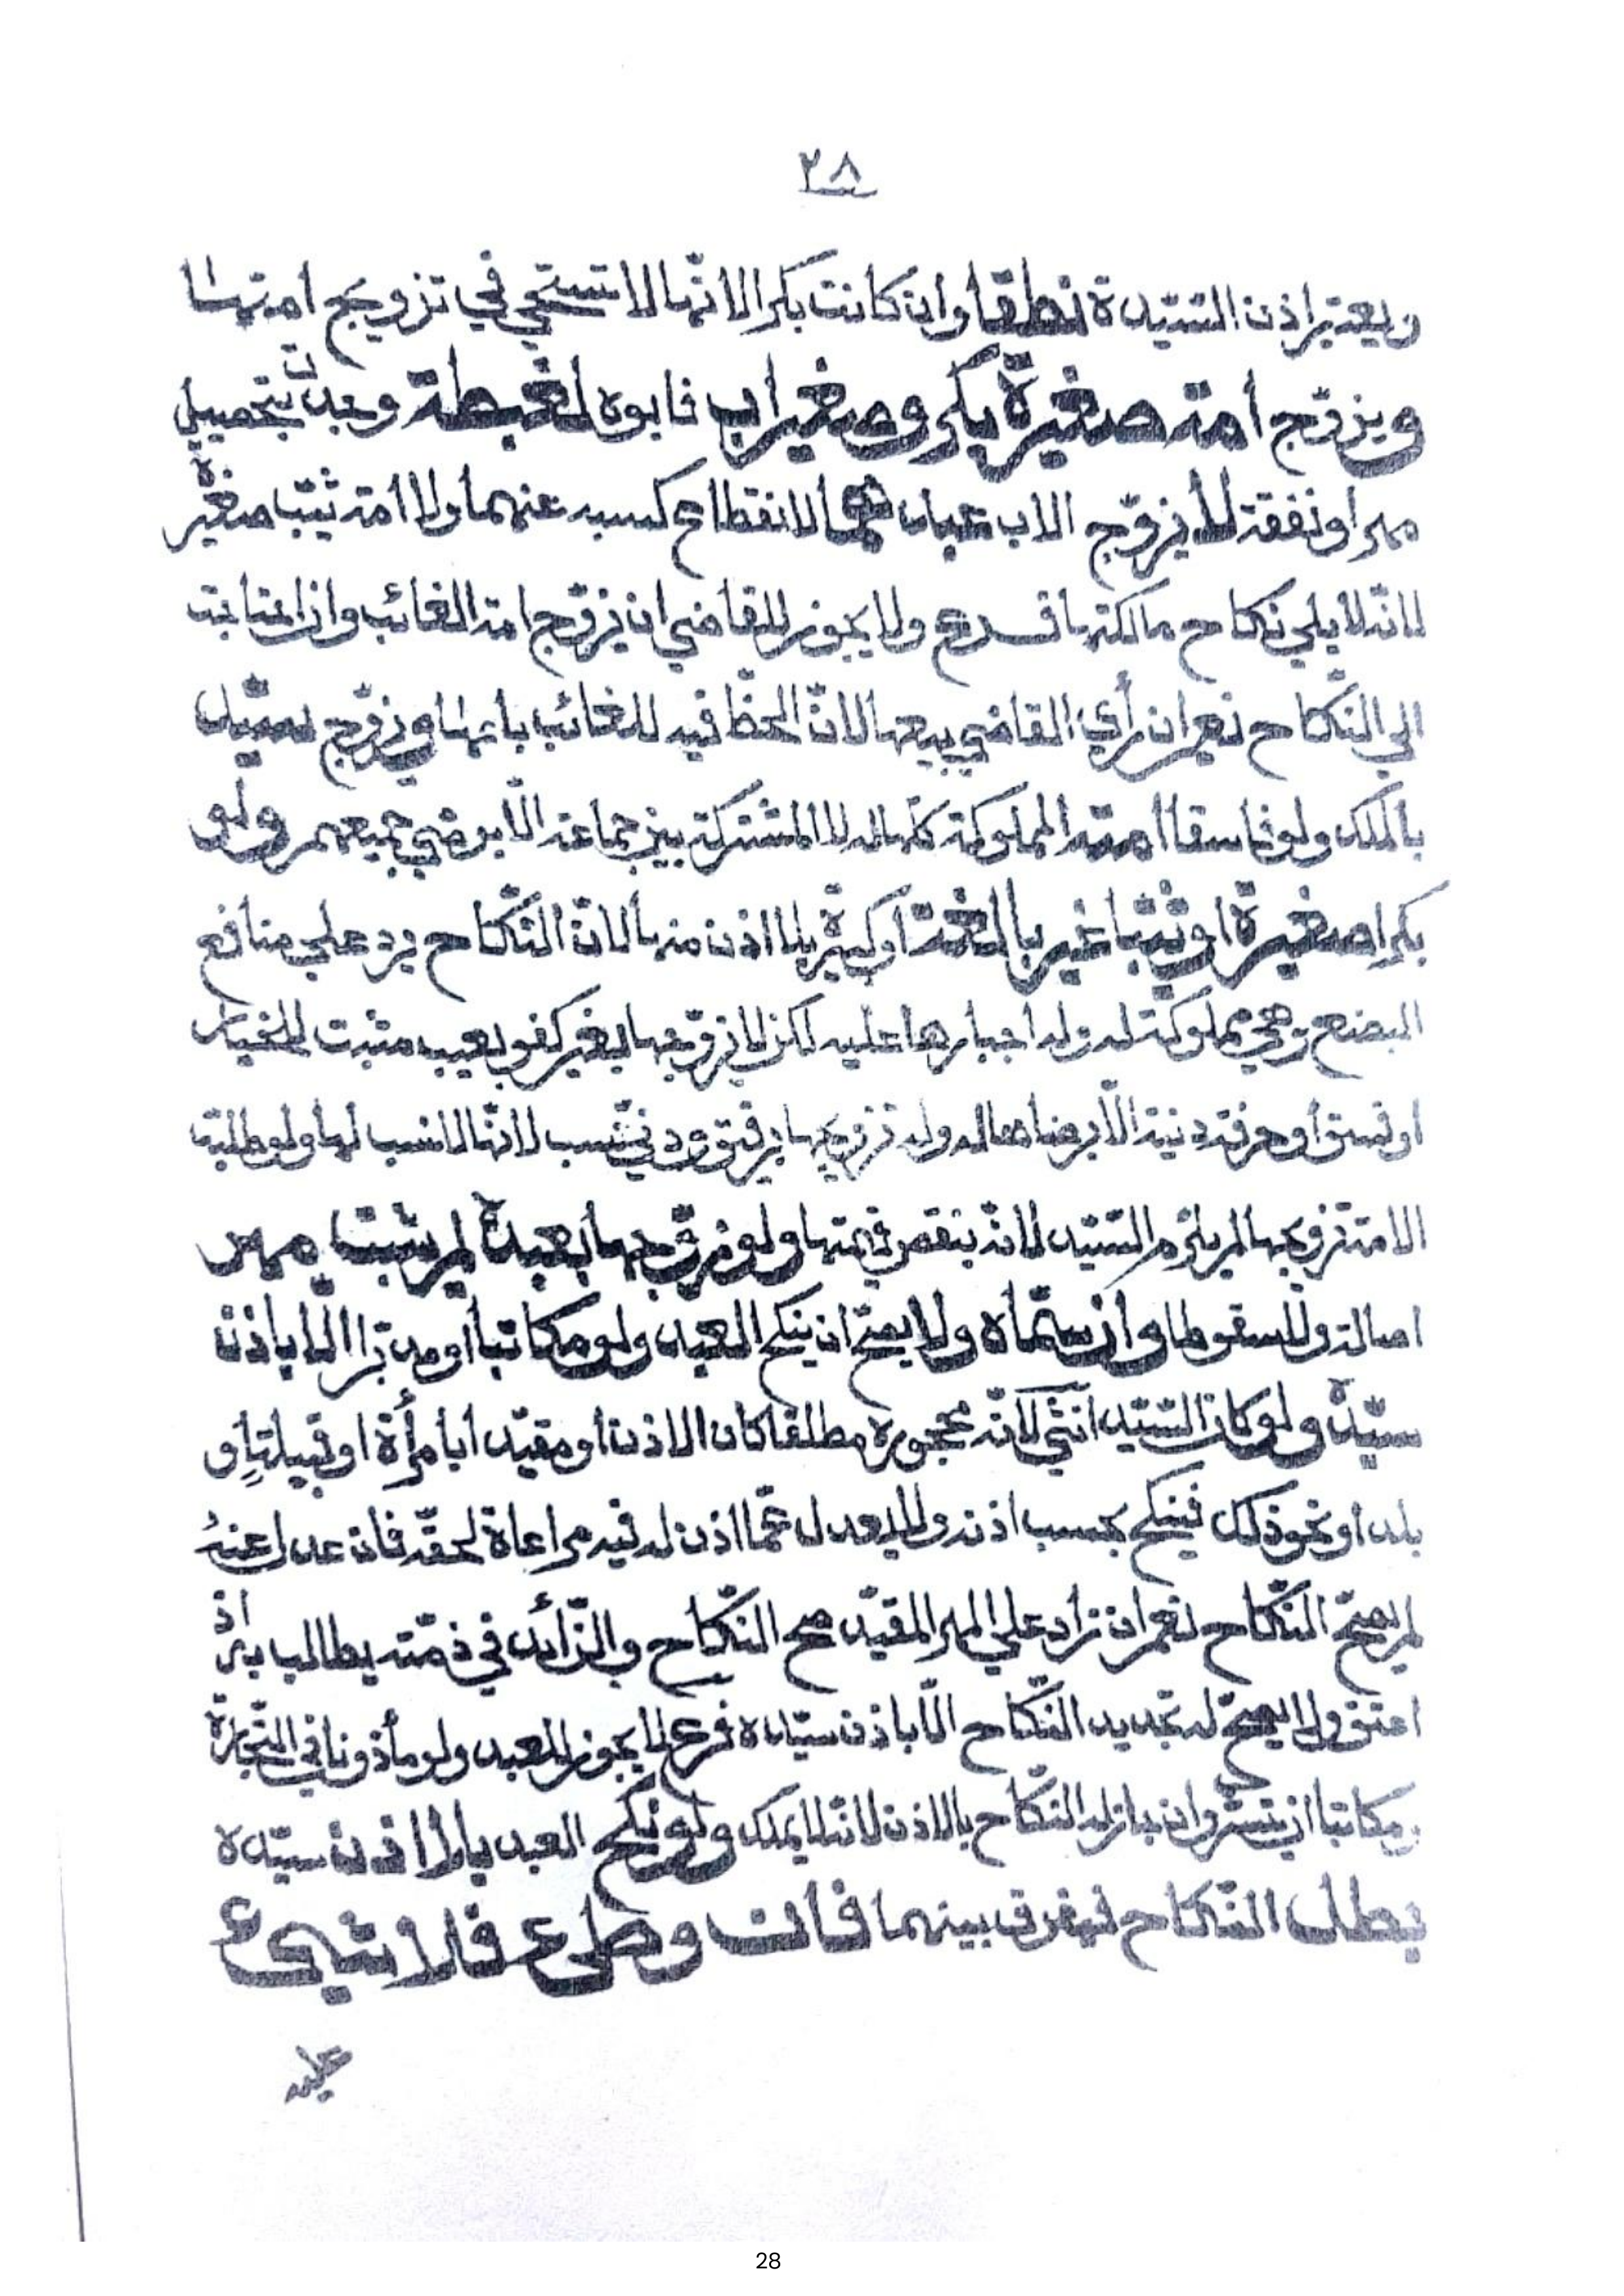 ٢٨
ويعتبر اذن السّيّدة نطقا وان كانت بكرا لانّها لا تستحي في تزويج امتها
ويزوّج امة صغيرة بكر وصغير اب فابوه لغبطة وجدت بتحصيل
مهر او نفقة لا يزوّج الاب عبدهما لانقطاع كسبه عنهما ولا امة ثيّب صغيرة
لانّه لا يلي نكاح مالكتها فرع ولا يجوز للقاضي ان يزوّج امة الغائب وان احتاجت
الى النّكاح نعم ان رأي القاضي بيعها لانّ الحظّ فيه للغائب باعها ويزوّج سيّد
بالملك ولو فاسقا امته المملوكة كلّها له لا المشتركة بين جماعة الّا برضي جميعهم ولو
بكرا صغيرة او ثيّبا غير بالغة او كبيرة بلا اذن منها لانّ النّكاح يرد على منافع
البضع وهي مملوكة له وله اجبارها عليه لكن لا يزوّجها بغير كفو بعيب مثبت للخيار
او فسق او حرفة دنيئة الّا برضاها له وله تزويجها برقيق ودنيّ نسب لانّها لا نسب لها ولو طلبت
الامة تزويجها لم يلزم السّيّد لانّه ينقص قيمتها ولو زوّجها بعبده لم يثبت مهر
اصالة ولا سقوطا وان سمّاه ولا يصحّ ان ينكح العبد ولو مكاتبا او مدبّرا الّا باذن
سيّده ولو كان السّيّد انثى لانّه محجوره مطلقا كان الاذن او مقيّدا بامرأة او قبيلة او
بلد او نحو ذلك فينكح بحسب اذنه ولا يعدل عمّا اذن له فيه مراعاة لحقّه فان عدل عنهُ
لم يصحّ النّكاح نعم ان زاد على المهر المقيّد صح النّكاح والزّائد في ذمّته يطالب به اذ
اعتق ولا يصحّ له تجديد النّكاح الّا باذن سيّده فرع لا يجوز للعبد ولو مأذونا في التّجارة
ومكاتبا ان يتسرّ وان جاز له النّكاح بالاذن لانّه لا يملك ولو نكح العبد بلا اذن سيّده
بطل النّكاح فيفرق بينهما فان وطىء فلا شيئ
عليه
28